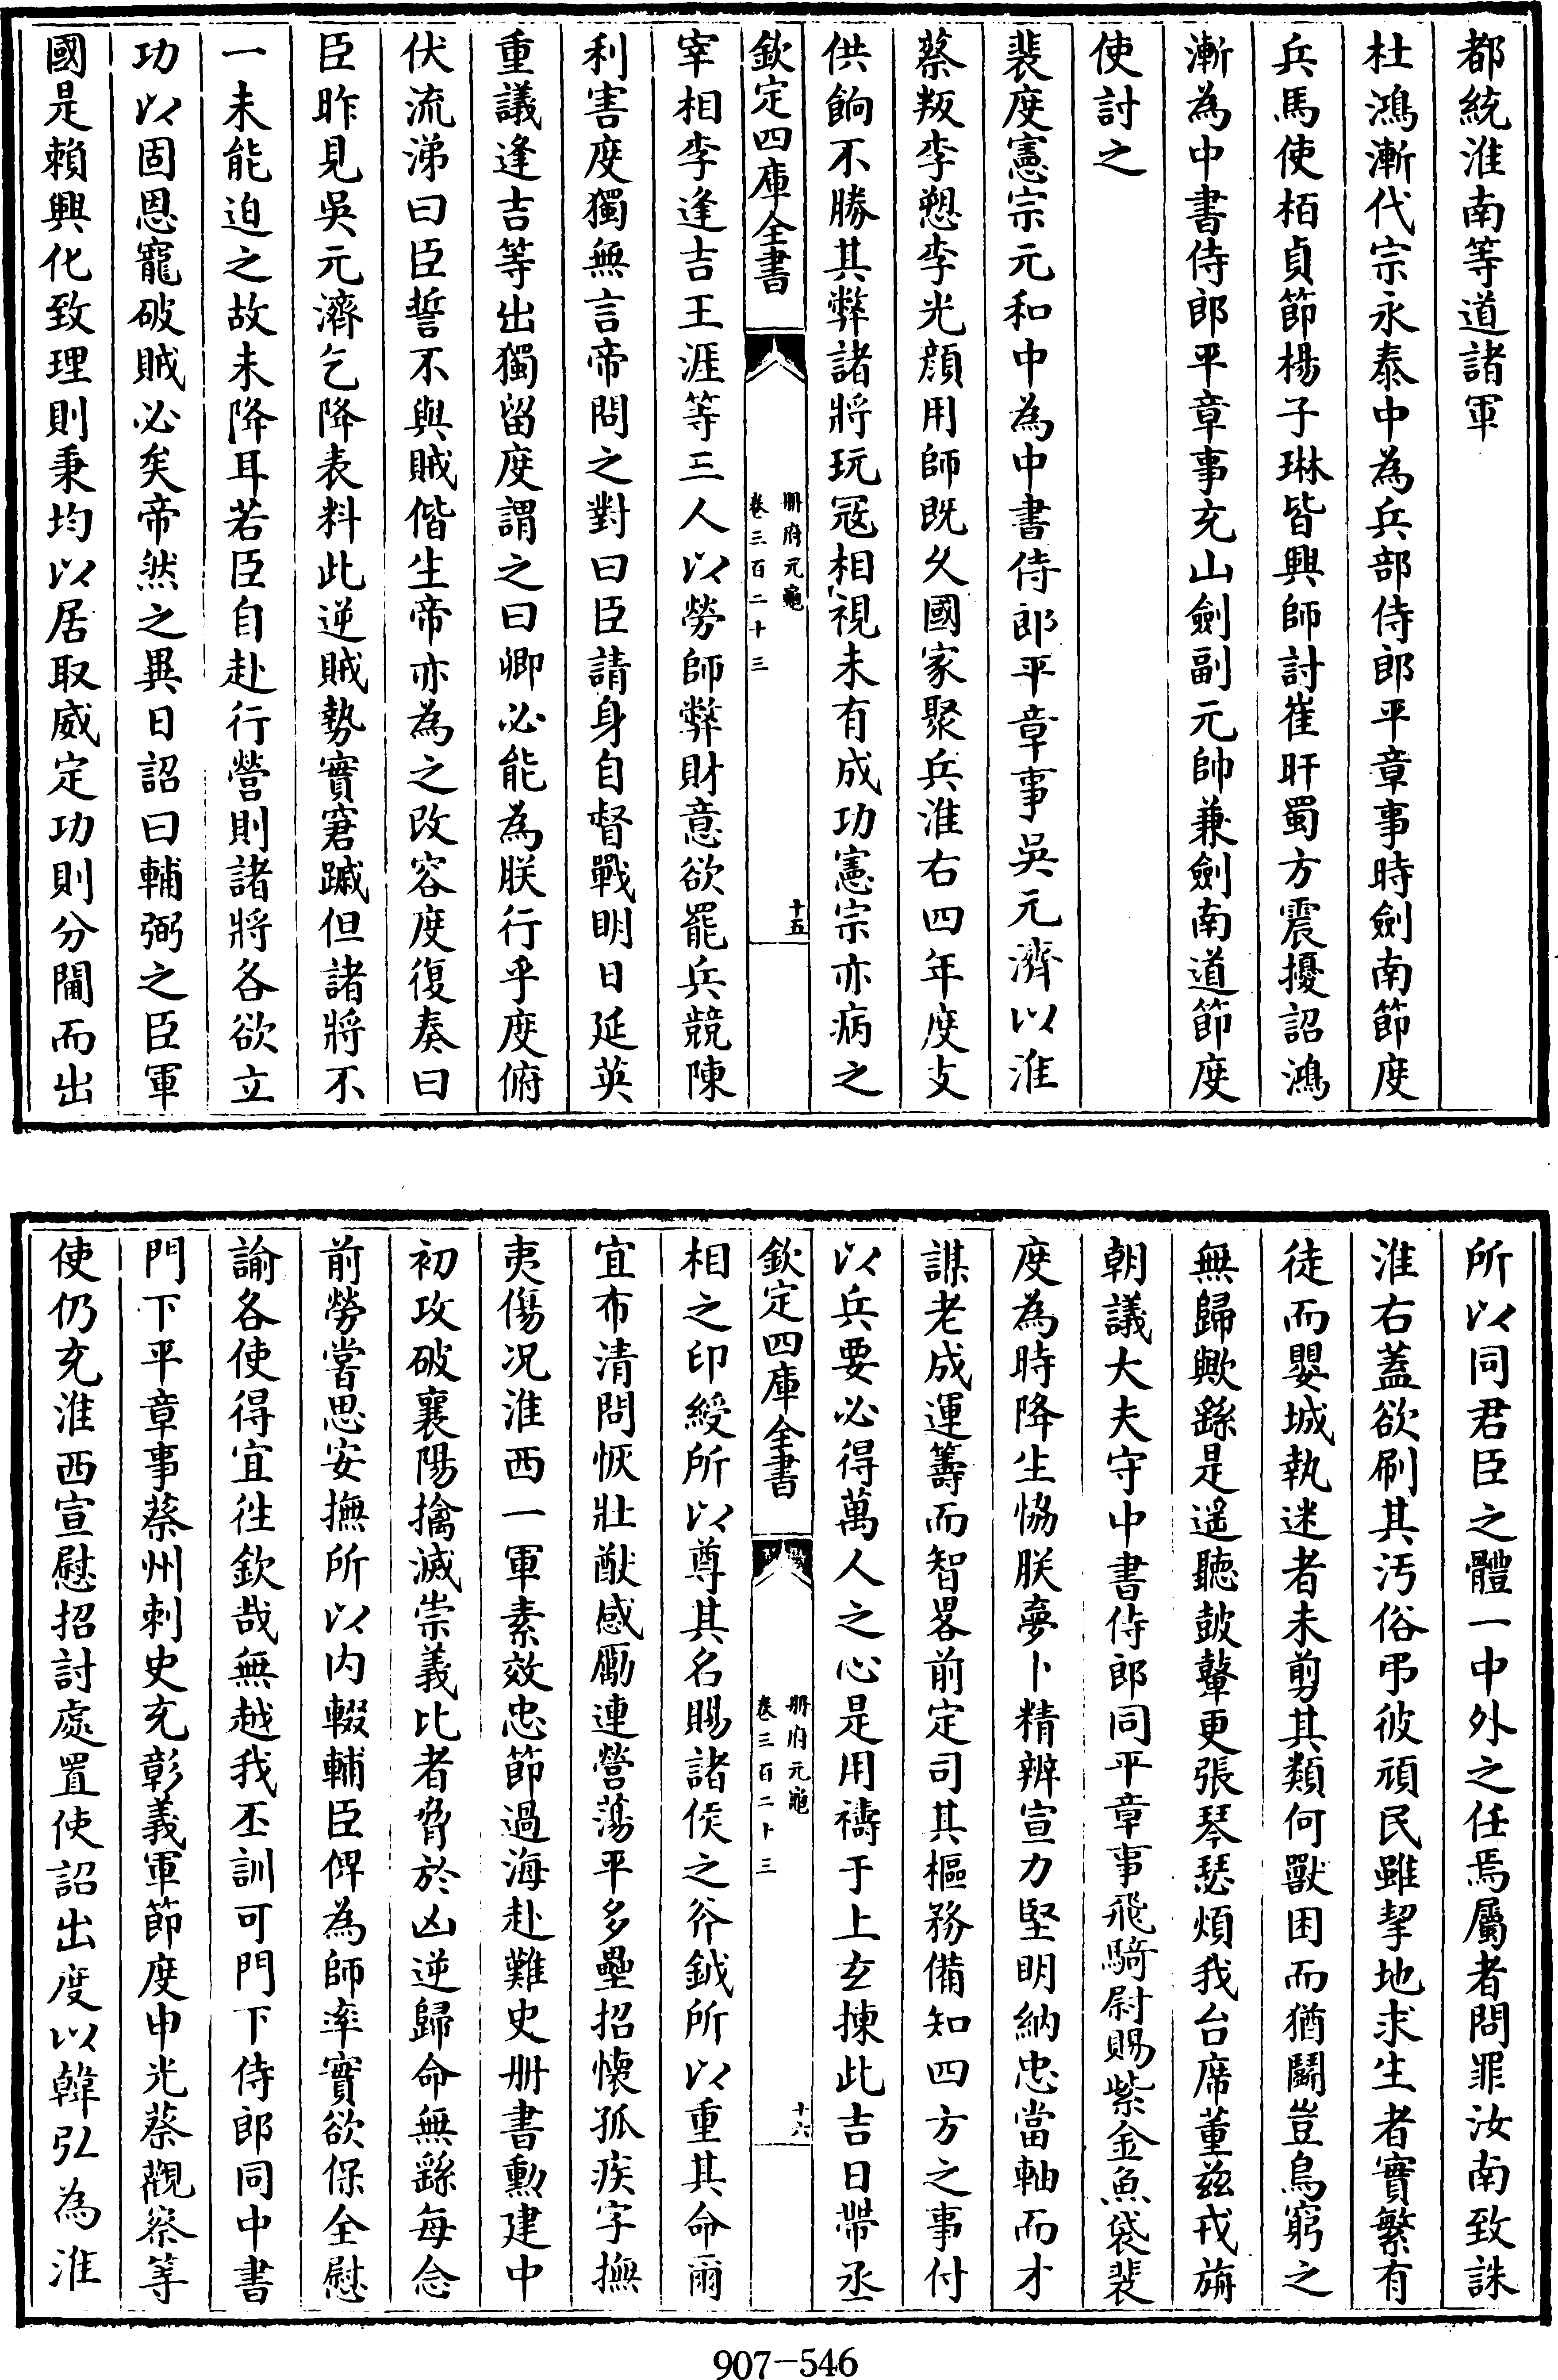 都統淮南等道諸軍
杜鴻漸代宗永泰中為兵部侍郎平章事時劍南節度
兵馬使栢貞節楊子琳皆興師討崔旰蜀方震擾詔鴻
漸為中書侍郎平章事充山劍副元帥兼劍南道節度
使討之
裴度憲宗元和中為中書侍郎平章事吳元濟以淮
蔡叛李愬李光顔用師既久國家聚兵淮右四年度支
供餉不勝其弊諸將玩寇相視未有成功憲宗亦病之
欽定四庫全書
冊府元龜
卷三百二十三
十五
宰相李逢吉王涯等三人以勞師弊財意欲罷兵競陳
利害度獨無言帝問之對曰臣請身自督戰明日延英
重議逢吉等出獨留度謂之曰卿必能為朕行乎度俯
伏流涕曰臣誓不與賊偕生帝亦為之改容度復奏曰
臣昨見吳元濟乞降表料此逆賊勢實窘蹴但諸將不
一未能迫之故未降耳若臣自赴行營則諸將各欲立
功以固恩寵破賊必矣帝然之異日詔曰輔弼之臣軍
國是賴興化致理則秉均以居取威定功則分閫而出
所以同君臣之體一中外之任焉屬者問罪汝南致誅
淮右蓋欲刷其汚俗弔彼頑民雖挈地求生者實繁有
徒而嬰城執迷者未剪其類何獸困而猶鬬豈鳥窮之
無歸歟繇是遥聽鼓鼙更張琴瑟煩我台席董兹戎旃
朝議大夫守中書侍郎同平章事飛騎尉賜紫金魚袋裴
度為時降生恊朕夢卜精辨宣力堅明納忠當軸而才
謀老成運籌而智畧前定司其樞務備知四方之事付
以兵要必得萬人之心是用禱于上玄揀此吉日帶丞
欽定四庫全書
冊府元龜
卷三百二十三
十六
相之印綬所以尊其名賜諸侯之斧鉞所以重其命爾
宜布清問恢壯猷感勵連營蕩平多壘招懷孤疾字撫
夷傷况淮西一軍素效忠節過海赴難史册書勲建中
初攻破襄陽擒滅崇義比者脅於凶逆歸命無繇每念
前勞嘗思安撫所以内輟輔臣俾為師率實欲保全慰
諭各使得宜徃欽哉無越我丕訓可門下侍郎同中書
門下平章事蔡州刺史充彰義軍節度申光蔡觀察等
使仍充淮西宣慰招討處置使詔出度以韓弘為淮
907-546